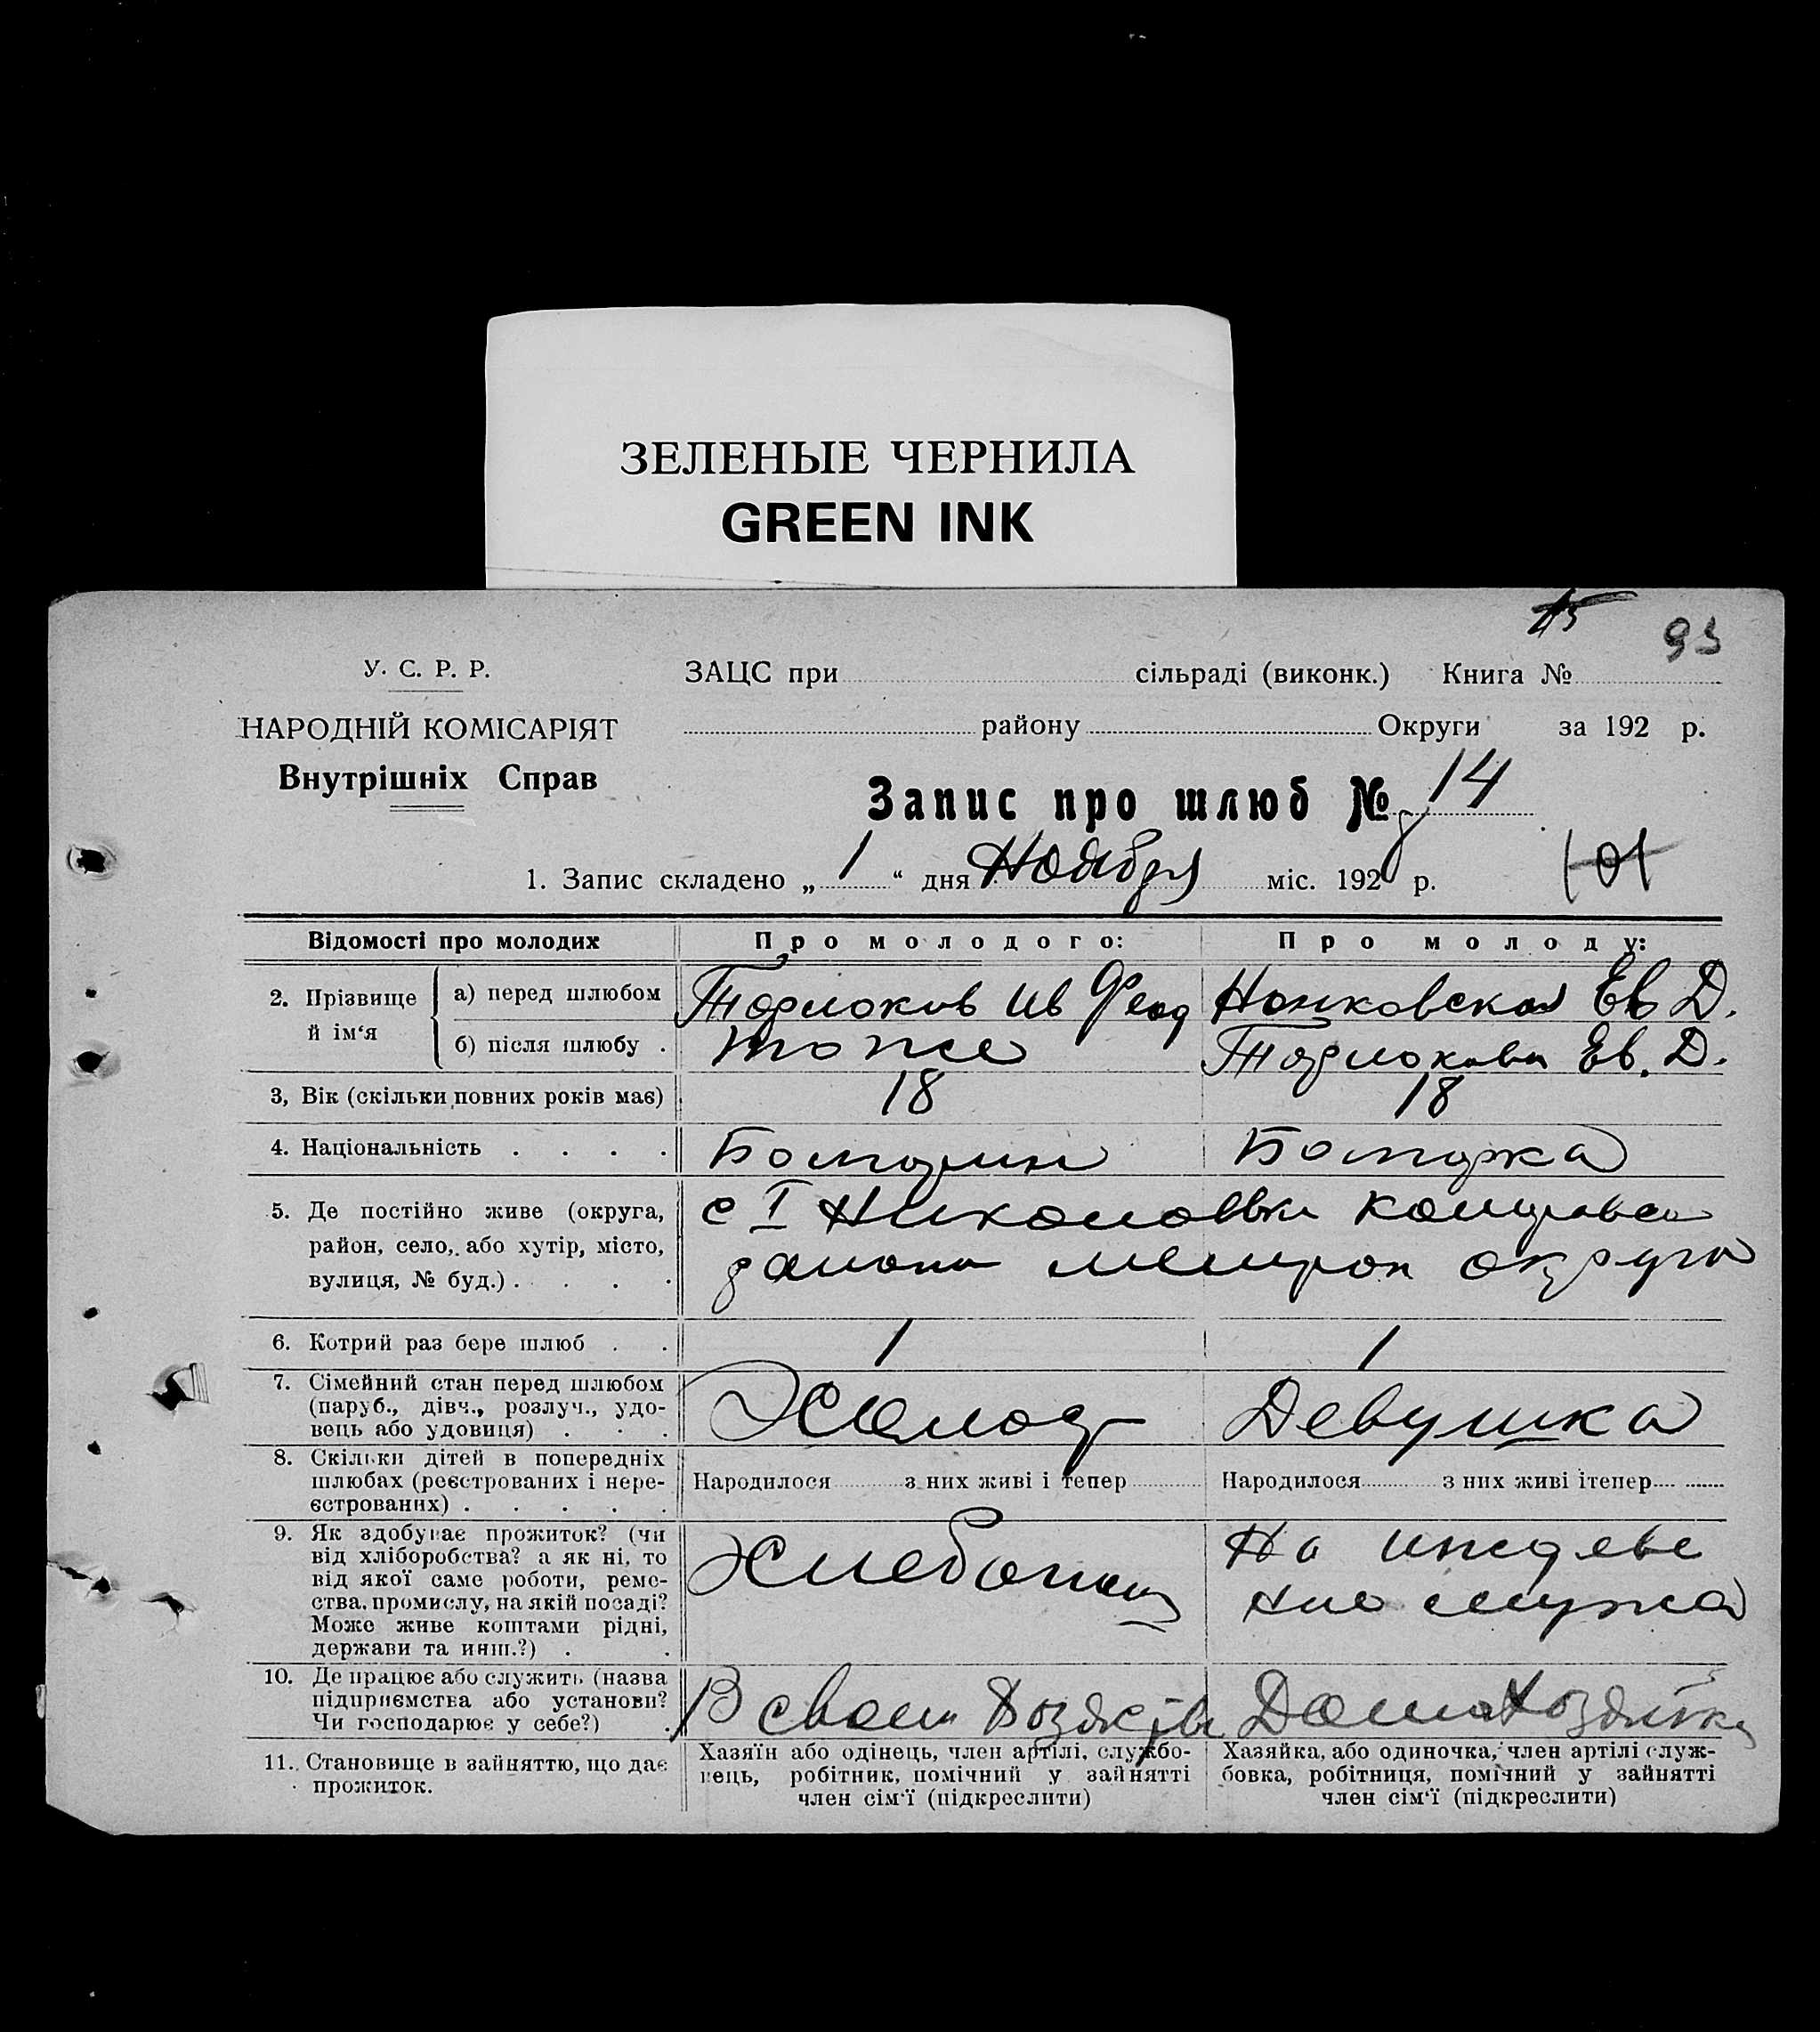 ЗЕЛЕНЫЕ ЧЕРНИЛА
GREEN INK
93
У. С. Р. Р.
НАРОДНІЙ КОМІСАРІЯТ
Внутрішніх Справ
ЗАЦС при сільраді (виконк.) Книга №
району Округи за 192 р.
Запис про шлюб № 14
1. Запис складено „ 1 “ дня Ноября міс. 192 р.
101
Відомості про молодих
Про молодого:
Про молоду:
2. Прізвище й ім‘я
а) перед шлюбом
Ив Феод
Ев Д.
б) після шлюбу .
тоже
Ев. Д.
3, Вік (скільки повних років має)
18
18
4. Національність . . . .
Болгарин
Болгарка
5. Де постійно живе (округа,
район, село, або хутір, місто,
вулиця, № буд.) . . . .
с I Николовки
округи
6. Котрий раз бере шлюб . .
1
1
7. Сімейний стан перед шлюбом
(паруб., дівч., розлуч., удо-
вець або удовиця) . . .
Холост
Девушка
8. Скільки дітей в попередніх
шлюбах (реєстрованих і нере-
єстрованих) . . . . .
Народилося з них живі і тепер
Народилося з них живі ітепер
9. Як здобуває прожиток? (чи
від хліборобства? а як ні, то
від якої саме роботи, реме-
ства, промислу, на якій посаді?
Може живе коштами рідні,
держави та инш.?) . .
Хлебопаш
На иждеве
ние мужа
10. Де працює або служить (назва
підприємства або установи?
Чи господарює у себе?) .
В своем Хозяйств
Домахозяйка
11. Становище в зайняттю, що дає
прожиток.
Хазяїн або одінець, член артілі, службо-
вець, робітник, помічний у зайнятті
член сім‘ї (підкреслити)
Хазяйка, або одиночка, член артілі служ-
бовка, робітниця, помічний у зайнятті
член сім‘ї (підкреслити)